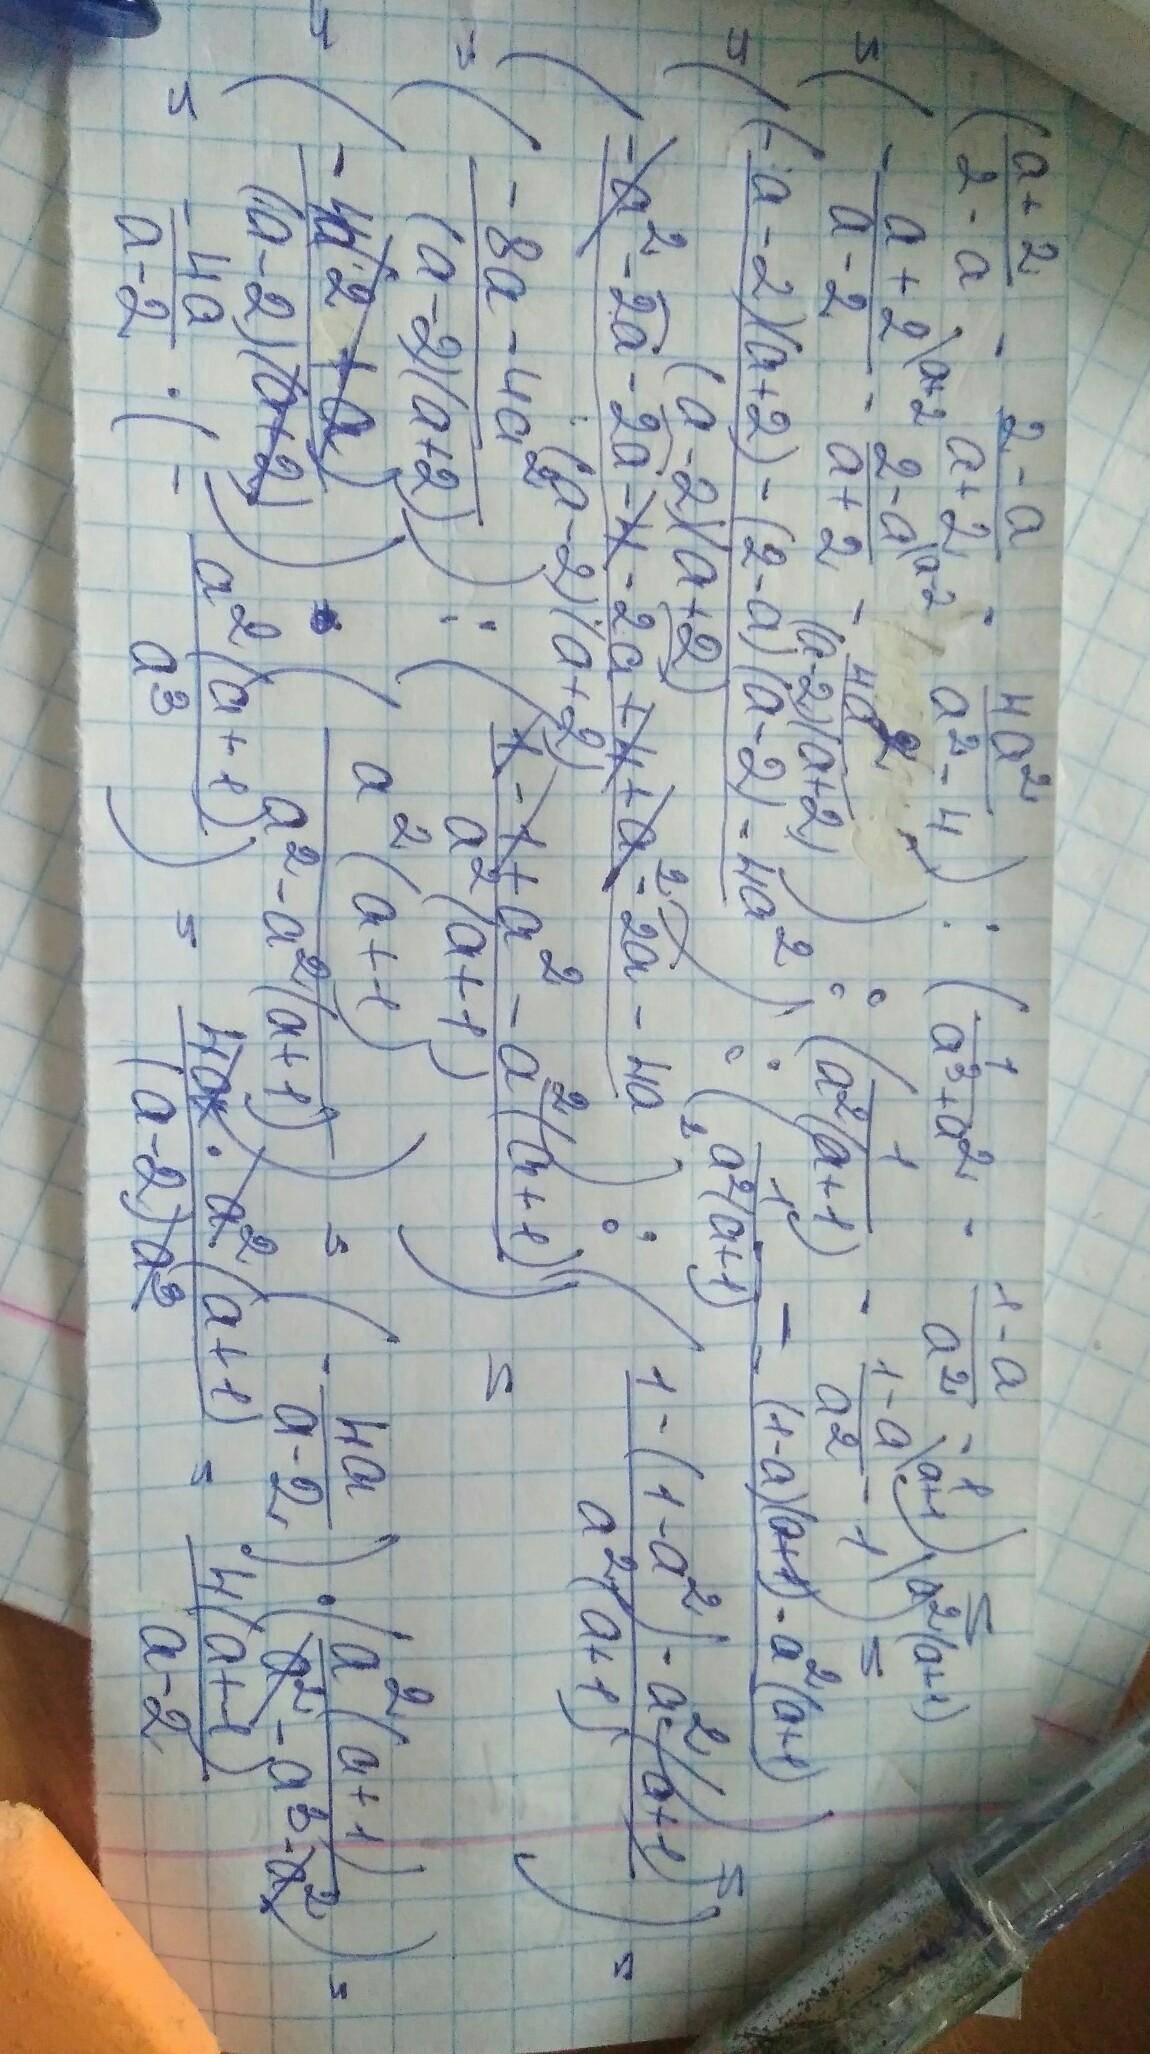 (a+2/2-a - 2-a/a+2 - 4a²/a²-4) : (1/a³+a² - 1-a/a² - 1) =
= (- a+2/a-2 \a+2 - 2-a/a+2 \a-2 - 4a²/(a-2)(a+2)) : (1/a²(a+1) - 1-a/a² \a+1 - 1 \a²(a+1)) =
= ((-a-2)(a+2) - (2-a)(a-2) - 4a²/(a-2)(a+2)) : (1/a²(a+1) - (1-a)(a+1) - a²(a+1)/a²(a+1)) =
= (-a²-2a-2a-4-2a+4+a²-2a-4a²/(a-2)(a+2)) : (1-(1-a²)-a²(a+1)/a²(a+1)) =
= (-8a-4a²/(a-2)(a+2)) : (1-1+a²-a²(a+1)/a²(a+1)) =
= (-4a(2+a)/(a-2)(a+2)) · (a²(a+1)/a²-a²(a+1)) = (- 4a/a-2) · (a²(a+1)/a²-a³-a²) =
= -4a/a-2 · (- a²(a+1)/a³) = 4a·a²(a+1)/(a-2)a³ = 4(a+1)/a-2